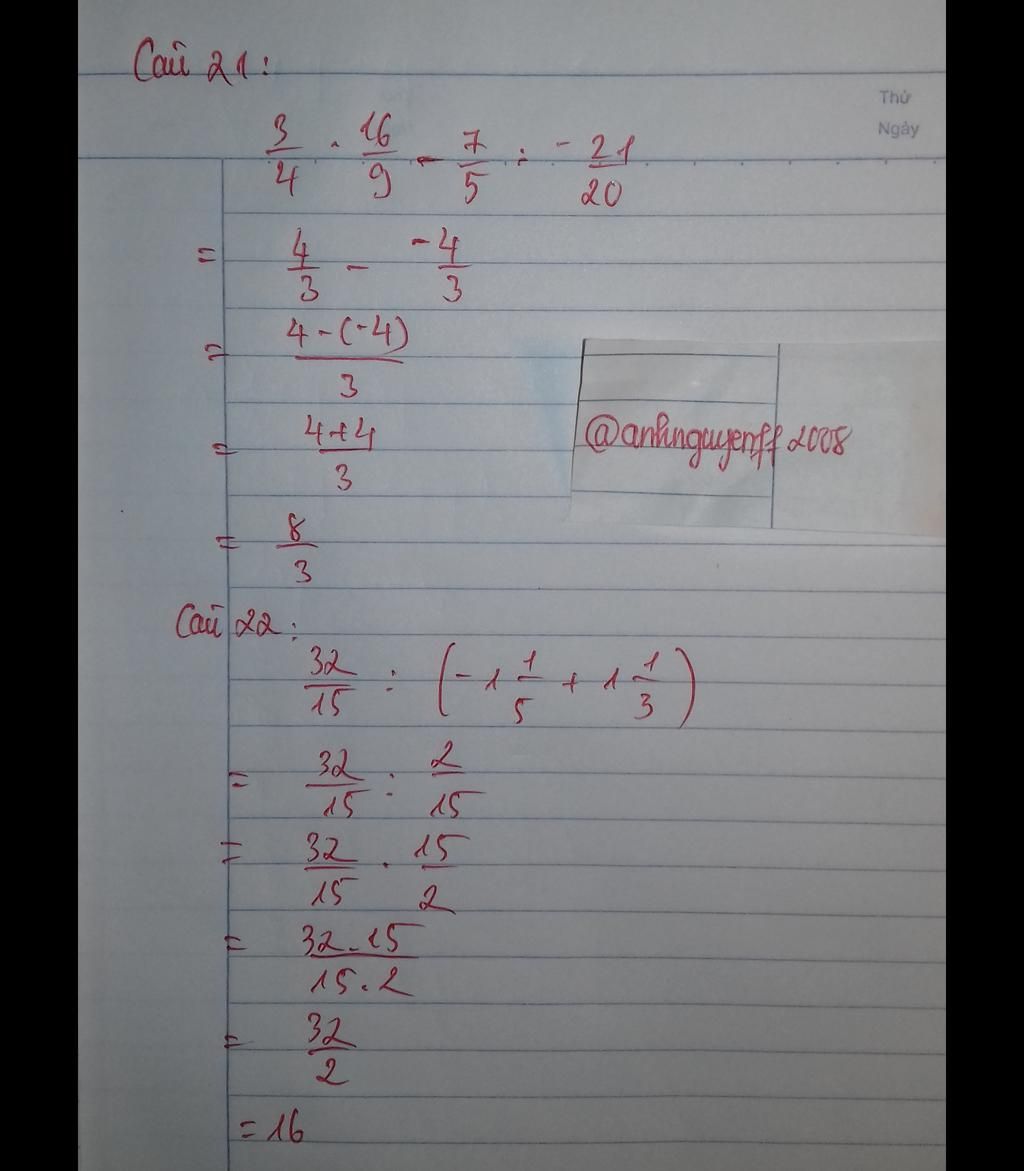 Câu 21:
Thứ
Ngày
3/4 . 16/9 - 7/5 : -21/20
= 4/3 - -4/3
= 4-(-4)/3
= 4+4/3
@anhnguyenff2008
= 8/3
Câu 22:
32/15 : (-1 1/5 + 1 1/3)
= 32/15 : 2/15
= 32/15 . 15/2
= 32.15/15.2
= 32/2
= 16